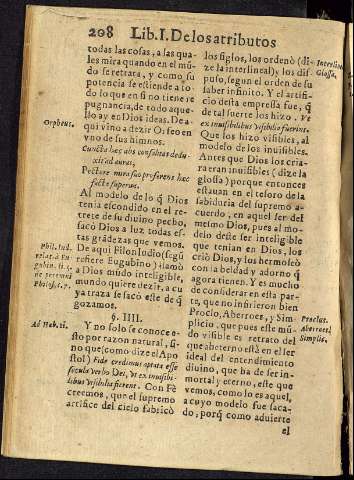 208 Lib. I. De los atributos
todas las cosas, a las qua-
les mira quando en el mũ-
do se retrata, y como su
potencia se estiende a to-
do lo que en si no tiene re
pugnancia, de todo aque-
llo ay en Dios ideas. De a-
Orpheus.
qui vino a dezir Orfeo en
vno de sus himnos.
Cuncta hæc abs consultas dedu-
xit ad auras,
Pectore mira suo proferens hæc
facta superne.
Al modelo de lo q̃ Dios
tenia escondido en el re-
trete de su diuino pecho,
sacò Dios a luz todas es-
tas grãdezas que vemos.
Phil. Iud.
relat. à Eu
gubin. li. 1.
de perenni
Philos. c. 7.
De aqui Filon Iudio (segũ
refiere Eugubino) llamò
a Dios mũdo inteligible,
mundo quiere dezir, a cu
ya traza se sacò este de q̃
gozamos.
§. IIII.
Ad Heb. 11.
Y no solo se conoce e-
sto por razon natural, si-
no que (como dize el Apo
stol) Fide credimus aptata esse
sæcula verbo Dei, vt ex inuisibi-
libus visibilia fierent. Con Fè
creemos, que el supremo
artifice del cielo fabricò
los siglos, los ordenò (di-
Interline.
Glossa.
ze la interlineal), y los dis-
puso, segun el orden de su
saber infinito. Y el artifi-
cio desta empressa fue, q̃
de tal suerte los hizo. Vt
ex inuisibilibus visibilia fierent.
Que los hizo visibles, al
modelo de los inuisibles.
Antes que Dios los cria-
ra eran inuisibles (dize la
glossa) porque entonces
estauan en el tesoro de la
sabiduria del supremo a-
cuerdo, en aquel ser del
mesmo Dios, pues al mo-
delo deste ser inteligible
que tenian en Dios, los
criò Dios, y los hermoseò
con la beldad y adorno q̃
agora tienen. Y es mucho
de considerar en esta par-
te, que no infirieron bien
Proclus.
Aberroes,
Simplic.
Proclo, Aberroes, y Sim-
plicio, que pues este mũ-
do visible es retrato del
que abeterno està en el ser
ideal del entendimiento
diuino, que ha de ser in-
mortal y eterno, este que
vemos, como lo es aquel,
a cuyo modelo fue saca-
do; porq̃ como aduierte
el